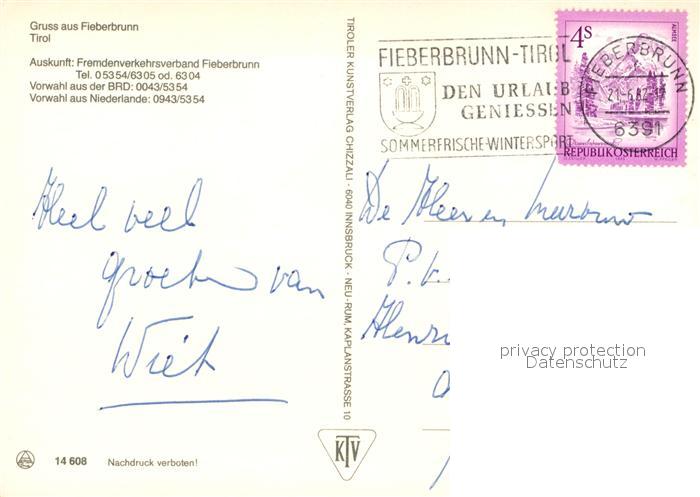 Gruss aus Fieberbrunn
Tirol
Auskunft: Fremdenverkehrsverband Fieberbrunn
Tel. 05354/6305 od. 6304
Vorwahl aus der BRD: 0043/5354
Vorwahl aus Niederlande: 0943/5354
Heel veel
groeten van
Wiet
14 608 Nachdruck verboten!
TIROLER KUNSTVERLAG CHIZZALI - 6040 INNSBRUCK - NEU-RUM, KAPLANSTRASSE 10
KTV
FIEBERBRUNN-TIROL
DEN URLAUB
GENIESSEN
SOMMERFRISCHE-WINTERSPORT
4S
ALMSEE
REPUBLIK ÖSTERREICH
FIEBERBRUNN
21.-6.82
6391
De Heer en
P. v.
Henri
privacy protection
Datenschutz